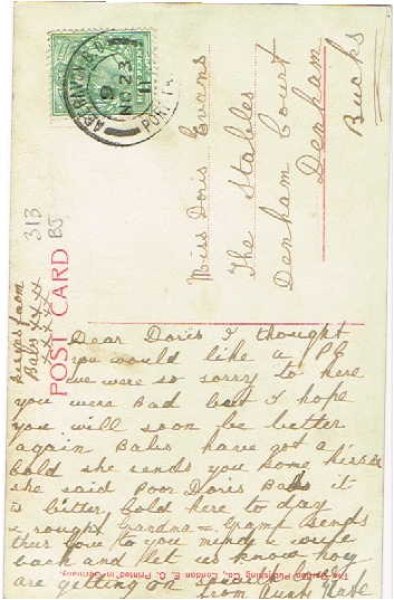 Miss Doris Evans
The Stables
Denham Court
Denham
Bucks
POST CARD
313
BJ
kisses from
Babs XXX
XXXX
Dear Doris I thought
you would like a PC
we were so sorry to here
you were Bad but I hope
you will soon be better
again Babs have got a
Cold she sends you some kisses
she said Poor Doris Babs it
is bitter Cold here to day
& rough Grandma & Gramp sends
their love to you mind & write
back and let us know how
are getting on
from Aunt Kate
NO 23
11
Publishing Co., London E. C. Printed in Germany.